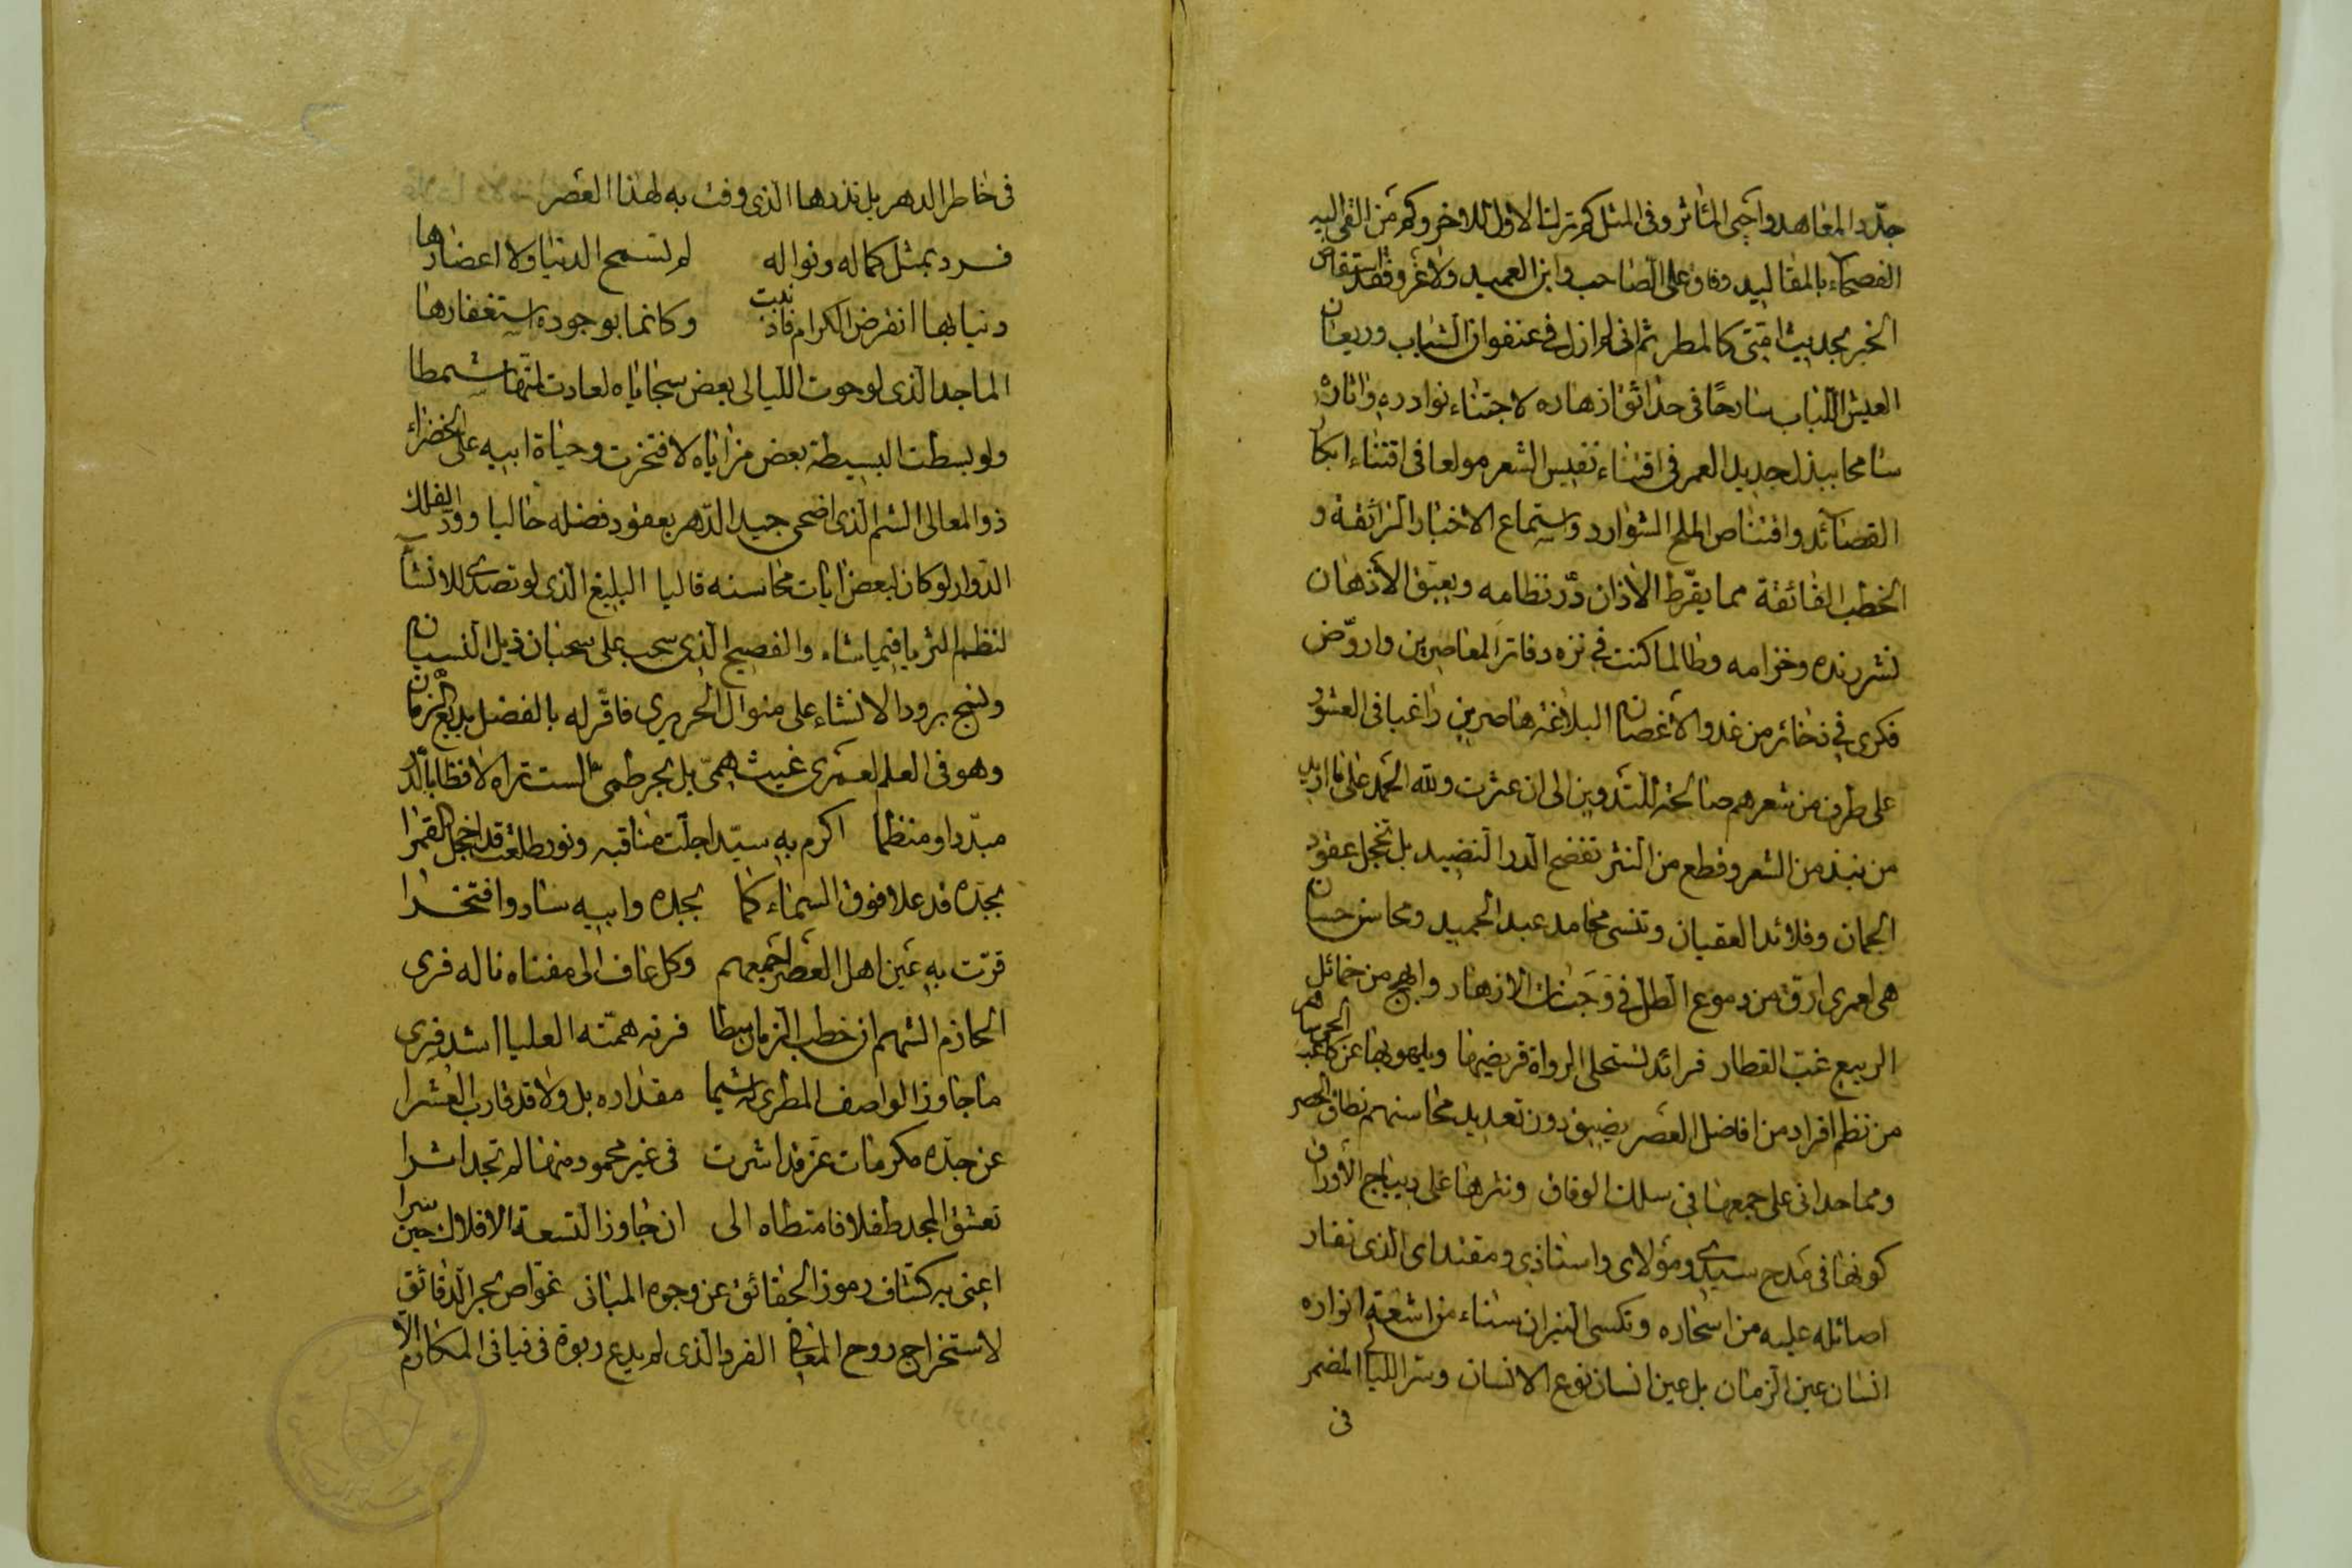 جدّد المعاهد واحيى المآثر وفى المثل كم ترك الاول للاخر وكم من القى اليه
الفصحاء بالمقاليد وفاق على الصاحب وابن العميد ولا غرو فقد استفاض
الخبر بحديث امتى كالمطر ثم انى لم ازل فى عنفوان الشباب وريعان
العيش اللباب سارحًا فى حدائق ازهاره لاجتناء نوادره واثاره
سامحا ببذل جديد العمر فى اقتناء نفيس الشعر مولعا فى اقتناء ابكار
القصائد واقتناص الملح الشوارد واستماع الاخبار الرائقة و
الخطب الفائقة مما يقرّط الاذان درّ نظامه ويعبق الاذهان
نشر رنده وخزامه وطالما كنت فى نزه دفاتر المعاصرين واروّض
فكرى فى ذخائر من غدوا لاغصان البلاغة هاصرين راغبا فى العثور
على طرف من شعرهم صالحة للتدوين الى ان عثرت ولله الحمد على ما اريد
من نبذ من الشعر وقطع من النثر تفضح الدر النضيد بل تخجل عقود
الجمان وقلائد العقيان وتنسى محامد عبد الحميد ومحاسن حسان
هى لعمرى ارق من دموع الطل فى وجنات الازهار وابهج من خمائل
الربيع غب القطار فرائد تستحلى الرواة قريضها ويلهو بها عن كاعب الحى سامر
من نظم افراد من افاضل العصر يضيق دون تعديد محاسنهم نطاق الحصر
ومما حدانى على جمعها فى سلك الوفاق ونثرها على ديباج الأوراق
كونها فى مدح سيدى ومولاى واستاذى ومقتداى الذى تغار
اصائله عليه من اسحاره وتكسى النيران سناء من اشعة انواره
انسان عين الزمان بل عين انسان نوع الانسان وسر الليالى المضمر
فى
فى خاطر الدهر بل نذرها الذى وفت به لهذا العصر
فرد بمثل كماله ونواله لم تسمح الدنيا ولا اعصارها
دنيا بها انقرض الكرام فاذنبت وكانما بوجوده استغفارها
الماجد الذى لو حوت الليالى بعض سجاياه لعادت لمتها شمطا
ولو بسطت البسيطة بعض مزاياه لافتخرت وحياة ابيه على الخضراء
ذو المعالى الشم الذى اضحى جيد الدهر بعقود فضله حاليا وودّ الفلك
الدوار لو كان لبعض ايات محاسنه قاليا البليغ الذى لو تصدى للانشاء
لنظم الثريا فيما شاء والفصيح الذى سحب على سحبان ذيل النسيان
ونسج برود الانشاء على منوال الحريرى فاقرّ له بالفضل بديع الزمان
وهو فى العلم لعمرى غيث همىّ بل بحر طمىّ الست تراه لافظا بالدر
مبدّدا ومنظما اكرم به سيّد اجلّت مناقبه ونور طلعته قد اخجل القمرا
بجدّه قد علا فوق السماء كما بجده وابيه ساد وافتخرا
قرّت به عين اهل العصر اجمعهم وكل عاف الى مغناه ناله قرى
الحازم الشهم ان خطب الزمان سطا فرته همّته العليا اشد فرى
ما جاوز الواصف المطرى له شيما مقداره بل ولا قد قارب العشرا
عن جدّه مكرمات عزّ قد اثرت فى غير محمود منها لم تجد اثرا
تعشق المجد طفلا فامتطاه الى ان جاوز التسعة الافلاك حين سرا
اعنى به كشاف رموز الحقائق عن وجوه المبانى غوّاص بحر الدقائق
لاستخراج روح المعانى الفرد الذى لم يدع ربوة فى فيافى المكارم الّا